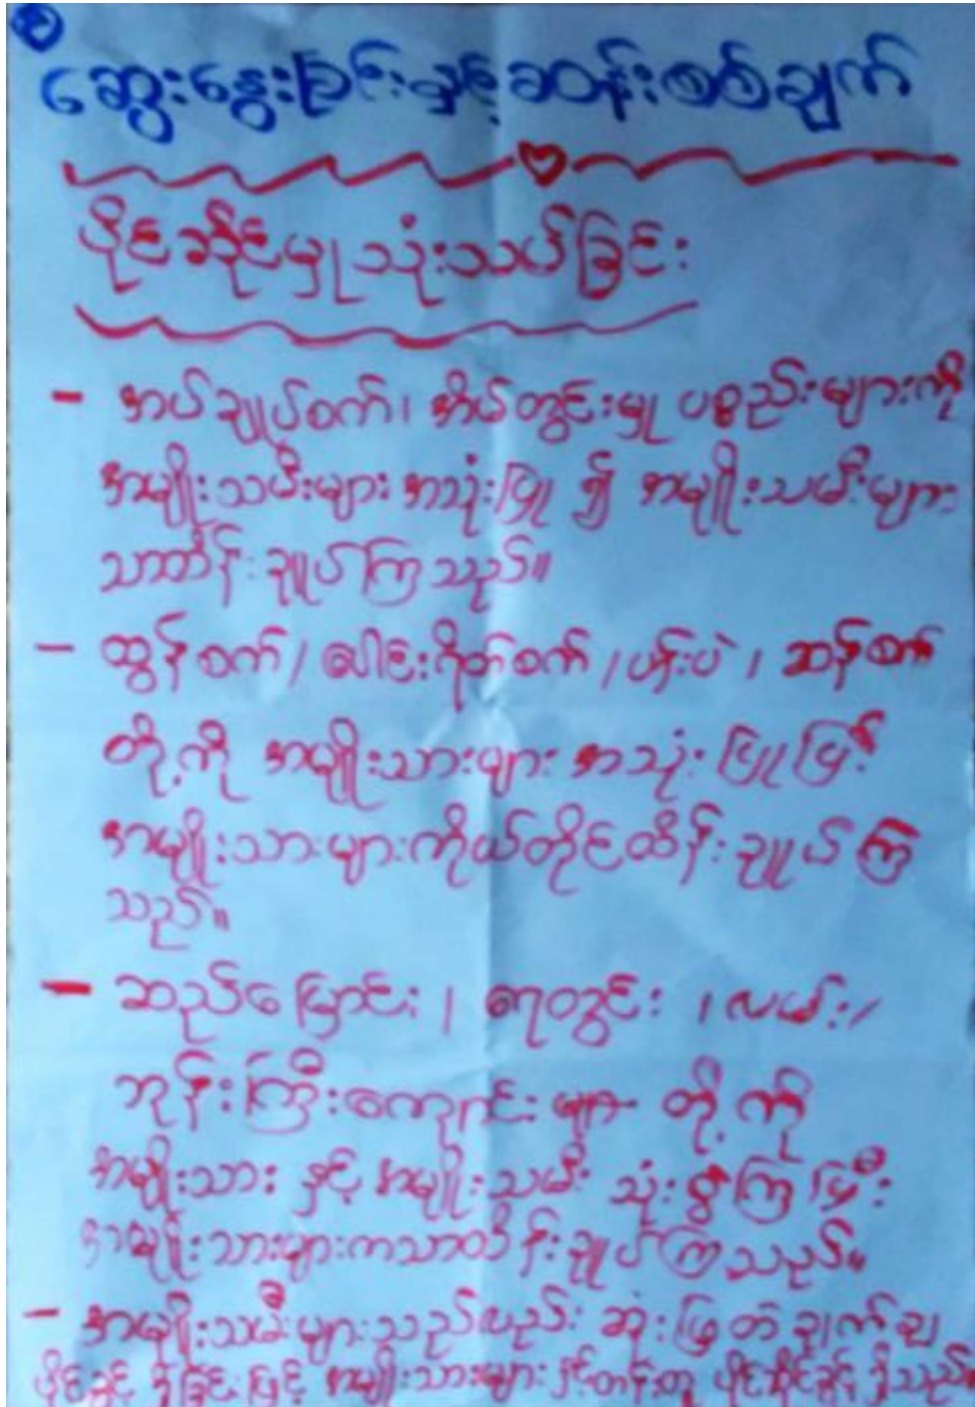 ဆွေးနွေးခြင်းနှင့်ဆန်းစစ်ချက်
ပိုင်ဆိုင်မှုသုံးသပ်ခြင်း
- အပ်ချုပ်စက်၊ အိမ်တွင်းမှု ပစ္စည်းများကို
အမျိုးသမီးများ အသုံးပြု ၍ အမျိုးသမီးများ
သာထိန်းချုပ်ကြသည်။
- ထွန်စက်/ပေါင်းရိတ်စက်/ပန်းပဲ ၊ ဆန်စက်
တို့ကို အမျိုးသားများ အသုံးပြုပြီး
အမျိုးသားများကိုယ်တိုင်ထိန်းချုပ်ကြ
သည်။
- ဆည်မြောင်း / ရေတွင်း ၊ လမ်း/
ဘုန်းကြီးကျောင်းများ တို့ကို
အမျိုးသား နှင့် အမျိုးသမီး သုံးစွဲကြပြီး
အမျိုးသားများကသာထိန်းချုပ်ကြသည်။
- အမျိုးသမီးများသည်လည်း ဆုံးဖြတ်ချက်ချ
ပိုင်ခွင့် ရှိခြင်းဖြင့် အမျိုးသားများ နှင့်တန်းတူ ပိုင်ဆိုင်ခွင့် ရှိသည်။